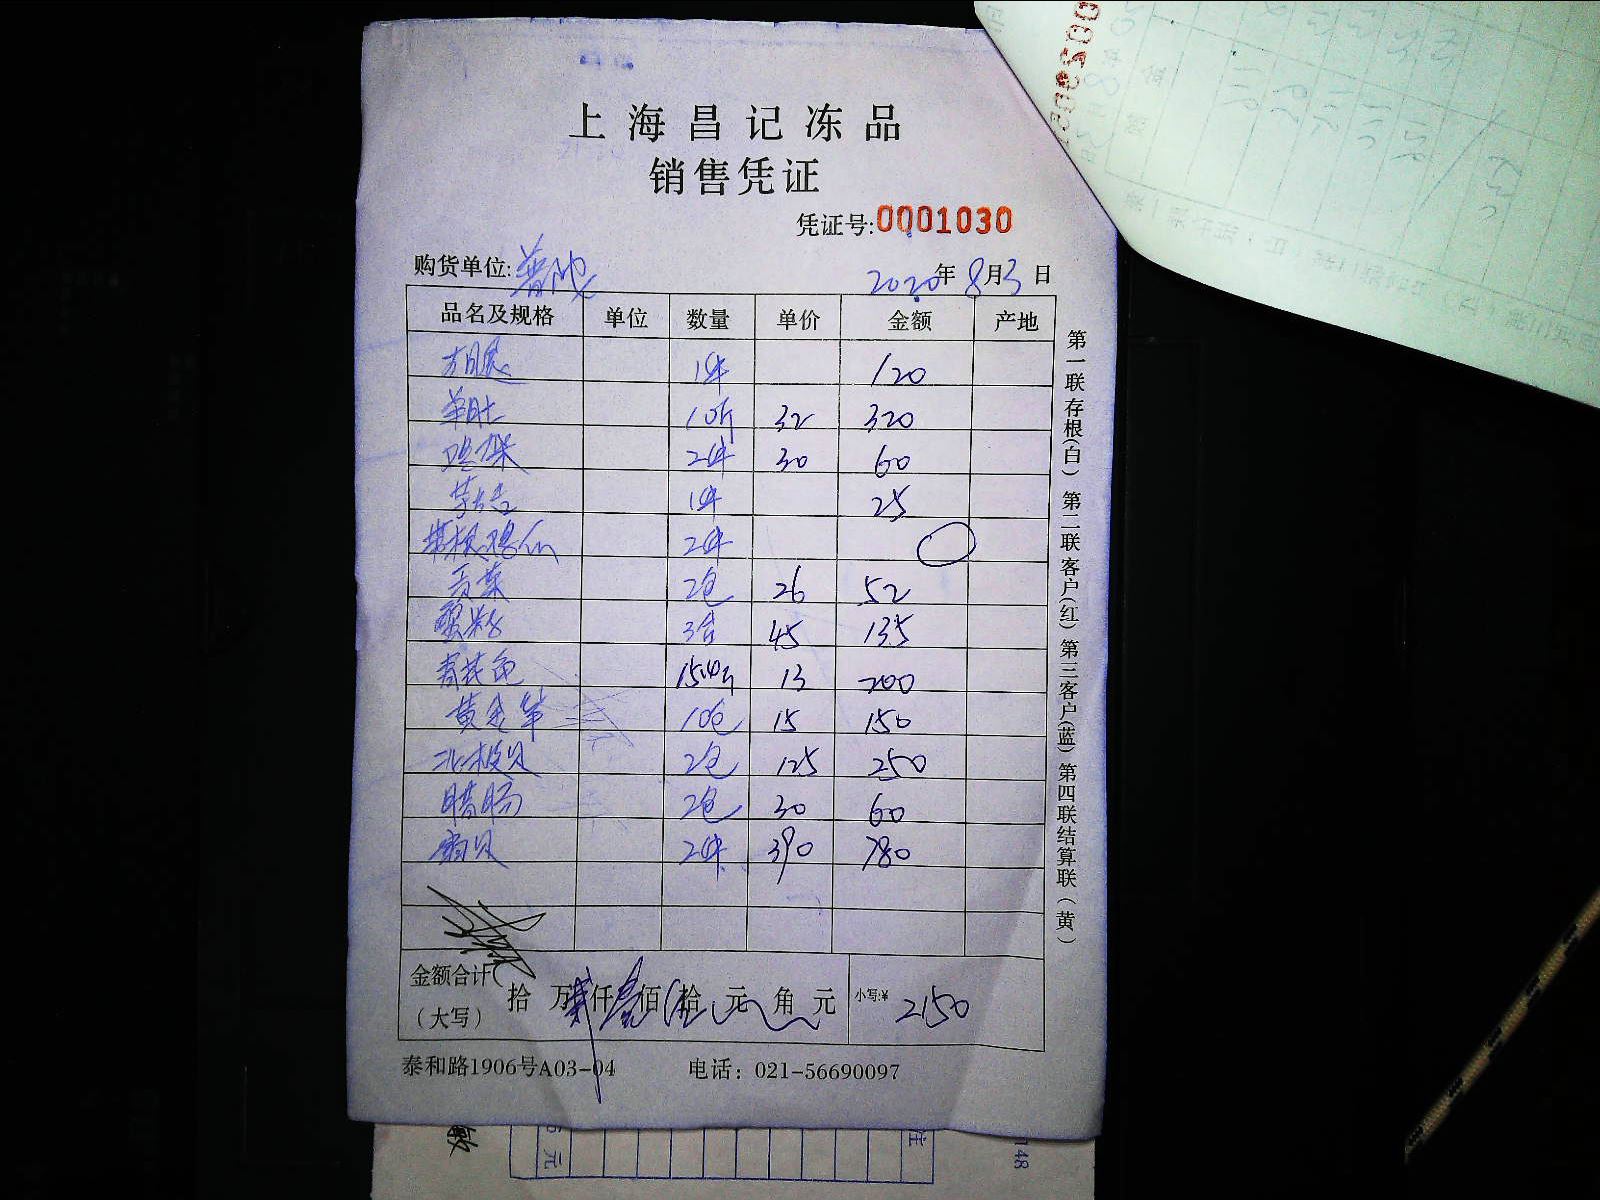 上海昌记冻品
销售凭证
凭证号:0001030
购货单位:普陀 2020年8月3日
品名及规格 单位 数量 单价 金额 产地
1件 120
羊肚 10斤 32 320
鸡架 2件 30 60
1件 25
2件
贡菜 2包 26 52
蟹粉 3合 45 135
15.4斤 13 200
黄金笋 10包 15 150
北极贝 2包 125 250
腊肠 2包 30 60
扇贝 2件 390 780
金额合计
(大写) 拾 万 仟 佰 拾 元 角 元 小写:¥ 2150
泰和路1906号A03-04 电话：021-56690097
第一联存根(白) 第二联客户(红) 第三客户(蓝) 第四联结算联(黄)